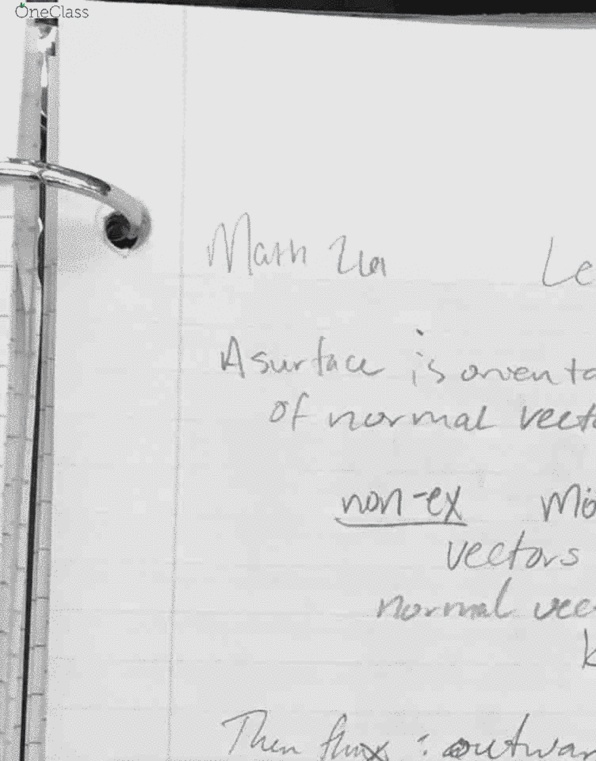 OneClass
Math 21a Le
A surface is orienta
of normal vect
non-ex Mö
vectors
normal vec
k
Then flux : outwar